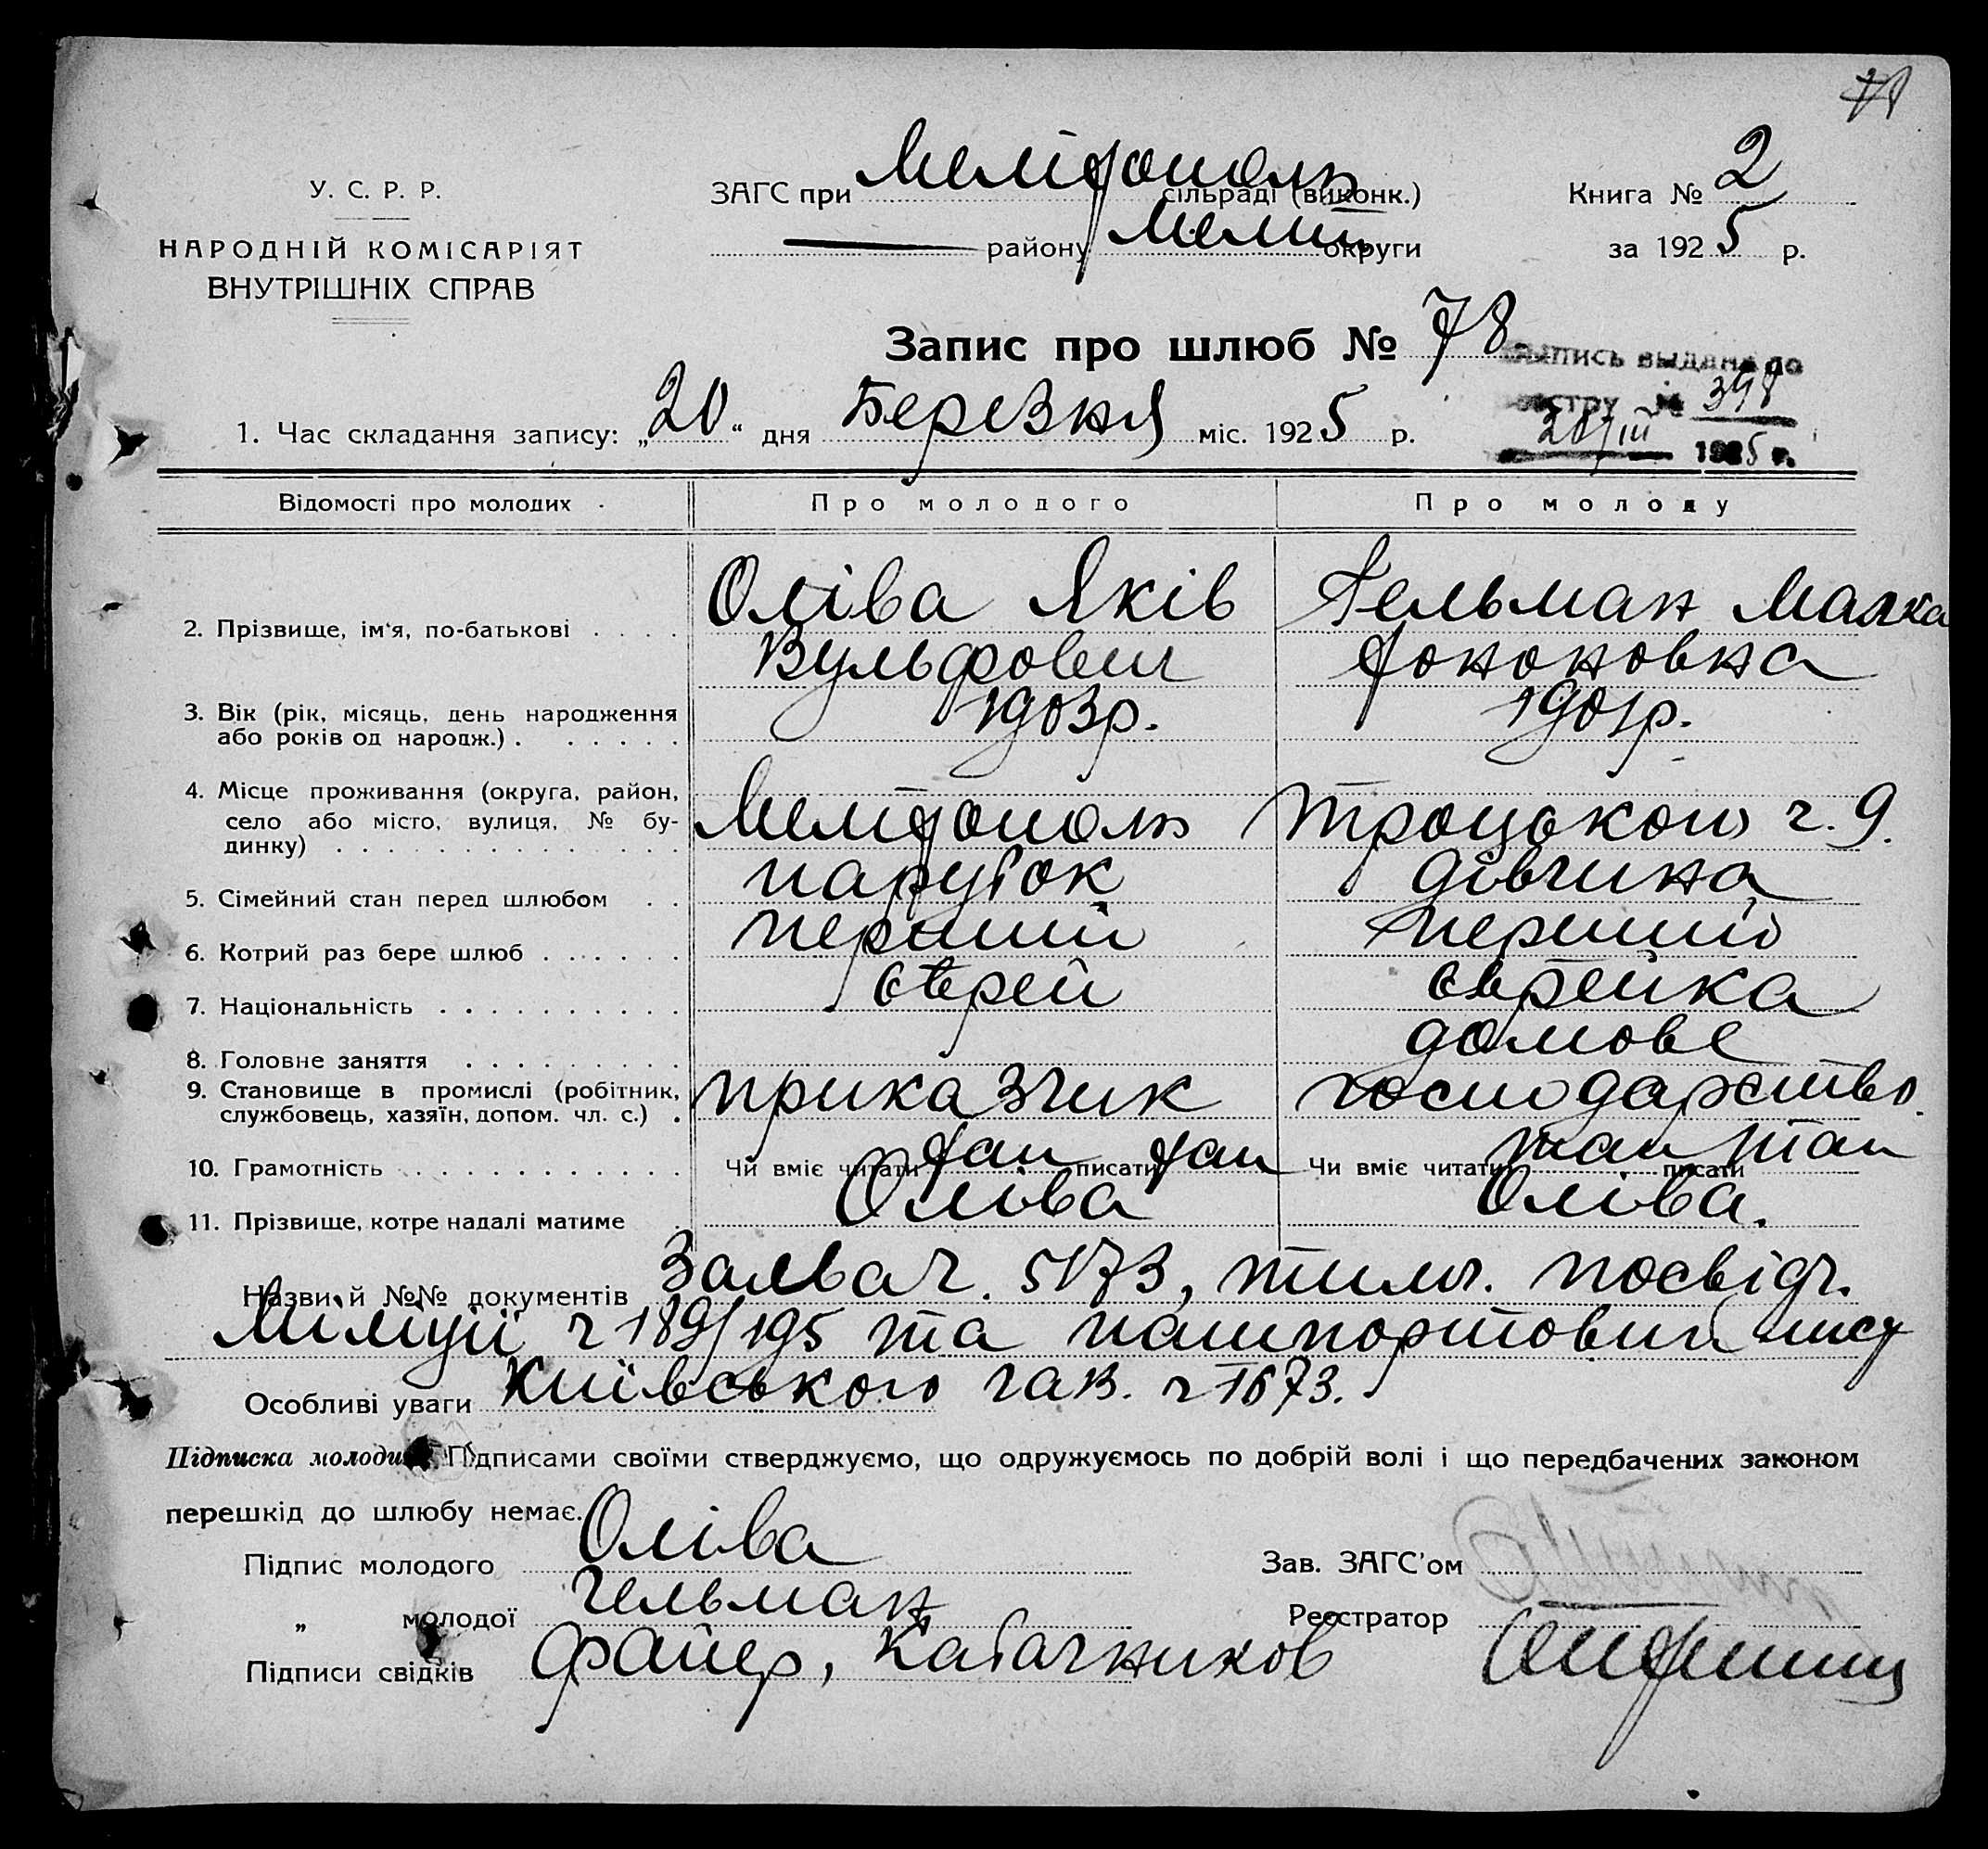 У. С. Р. Р.
НАРОДНІЙ КОМІСАРІЯТ
ВНУТРІШНІХ СПРАВ
ЗАГС при Мелітополь сільраді (виконк.)
району Меліт округи
Книга № 2
за 1925 р.
Запис про шлюб № 78
выдана по
№ 398
20/III 1925 г.
1. Час складання запису: „20“ дня Березня міс. 1925 р.
Відомості про молодих Про молодого Про молоду
2. Прізвище, ім'я, по-батькові . . . . Оліва Яків Гельман Малка
Вульфович
3. Вік (рік, місяць, день народження 1903р. 1901р.
або років од народж.) . . . . . .
4. Місце проживання (округа, район,
село або місто, вулиця, № бу- Мелітополь Троцького ч. 9.
динку) . . . . . . . . . . . . . .
5. Сімейний стан перед шлюбом . . парубок дівчина
6. Котрий раз бере шлюб . . . . . . перший перший
7. Національність . . . . . . . . . . єврей єврейка
8. Головне заняття . . . . . . . . . домове
9. Становище в промислі (робітник, приказчик господарство.
службовець, хазяїн, допом. чл. с.) .
10. Грамотність . . . . . . . . . . . . Чи вміє читати так писати так Чи вміє читати так писати так
11. Прізвище, котре надалі матиме Оліва Оліва.
Назви й №№ документів Заява ч. 5173, тимч. посвідч.
Міліції ч 189/195 та пашпортовий лист
Особливі уваги Київського ч 1673.
Підписка молодих Підписами своїми стверджуємо, що одружуємось по добрій волі і що передбачених законом
перешкід до шлюбу немає.
Підпис молодого Оліва
Зав. ЗАГС'ом
„ молодої Гельман
Реєстратор
Підписи свідків Файер, Кабачников